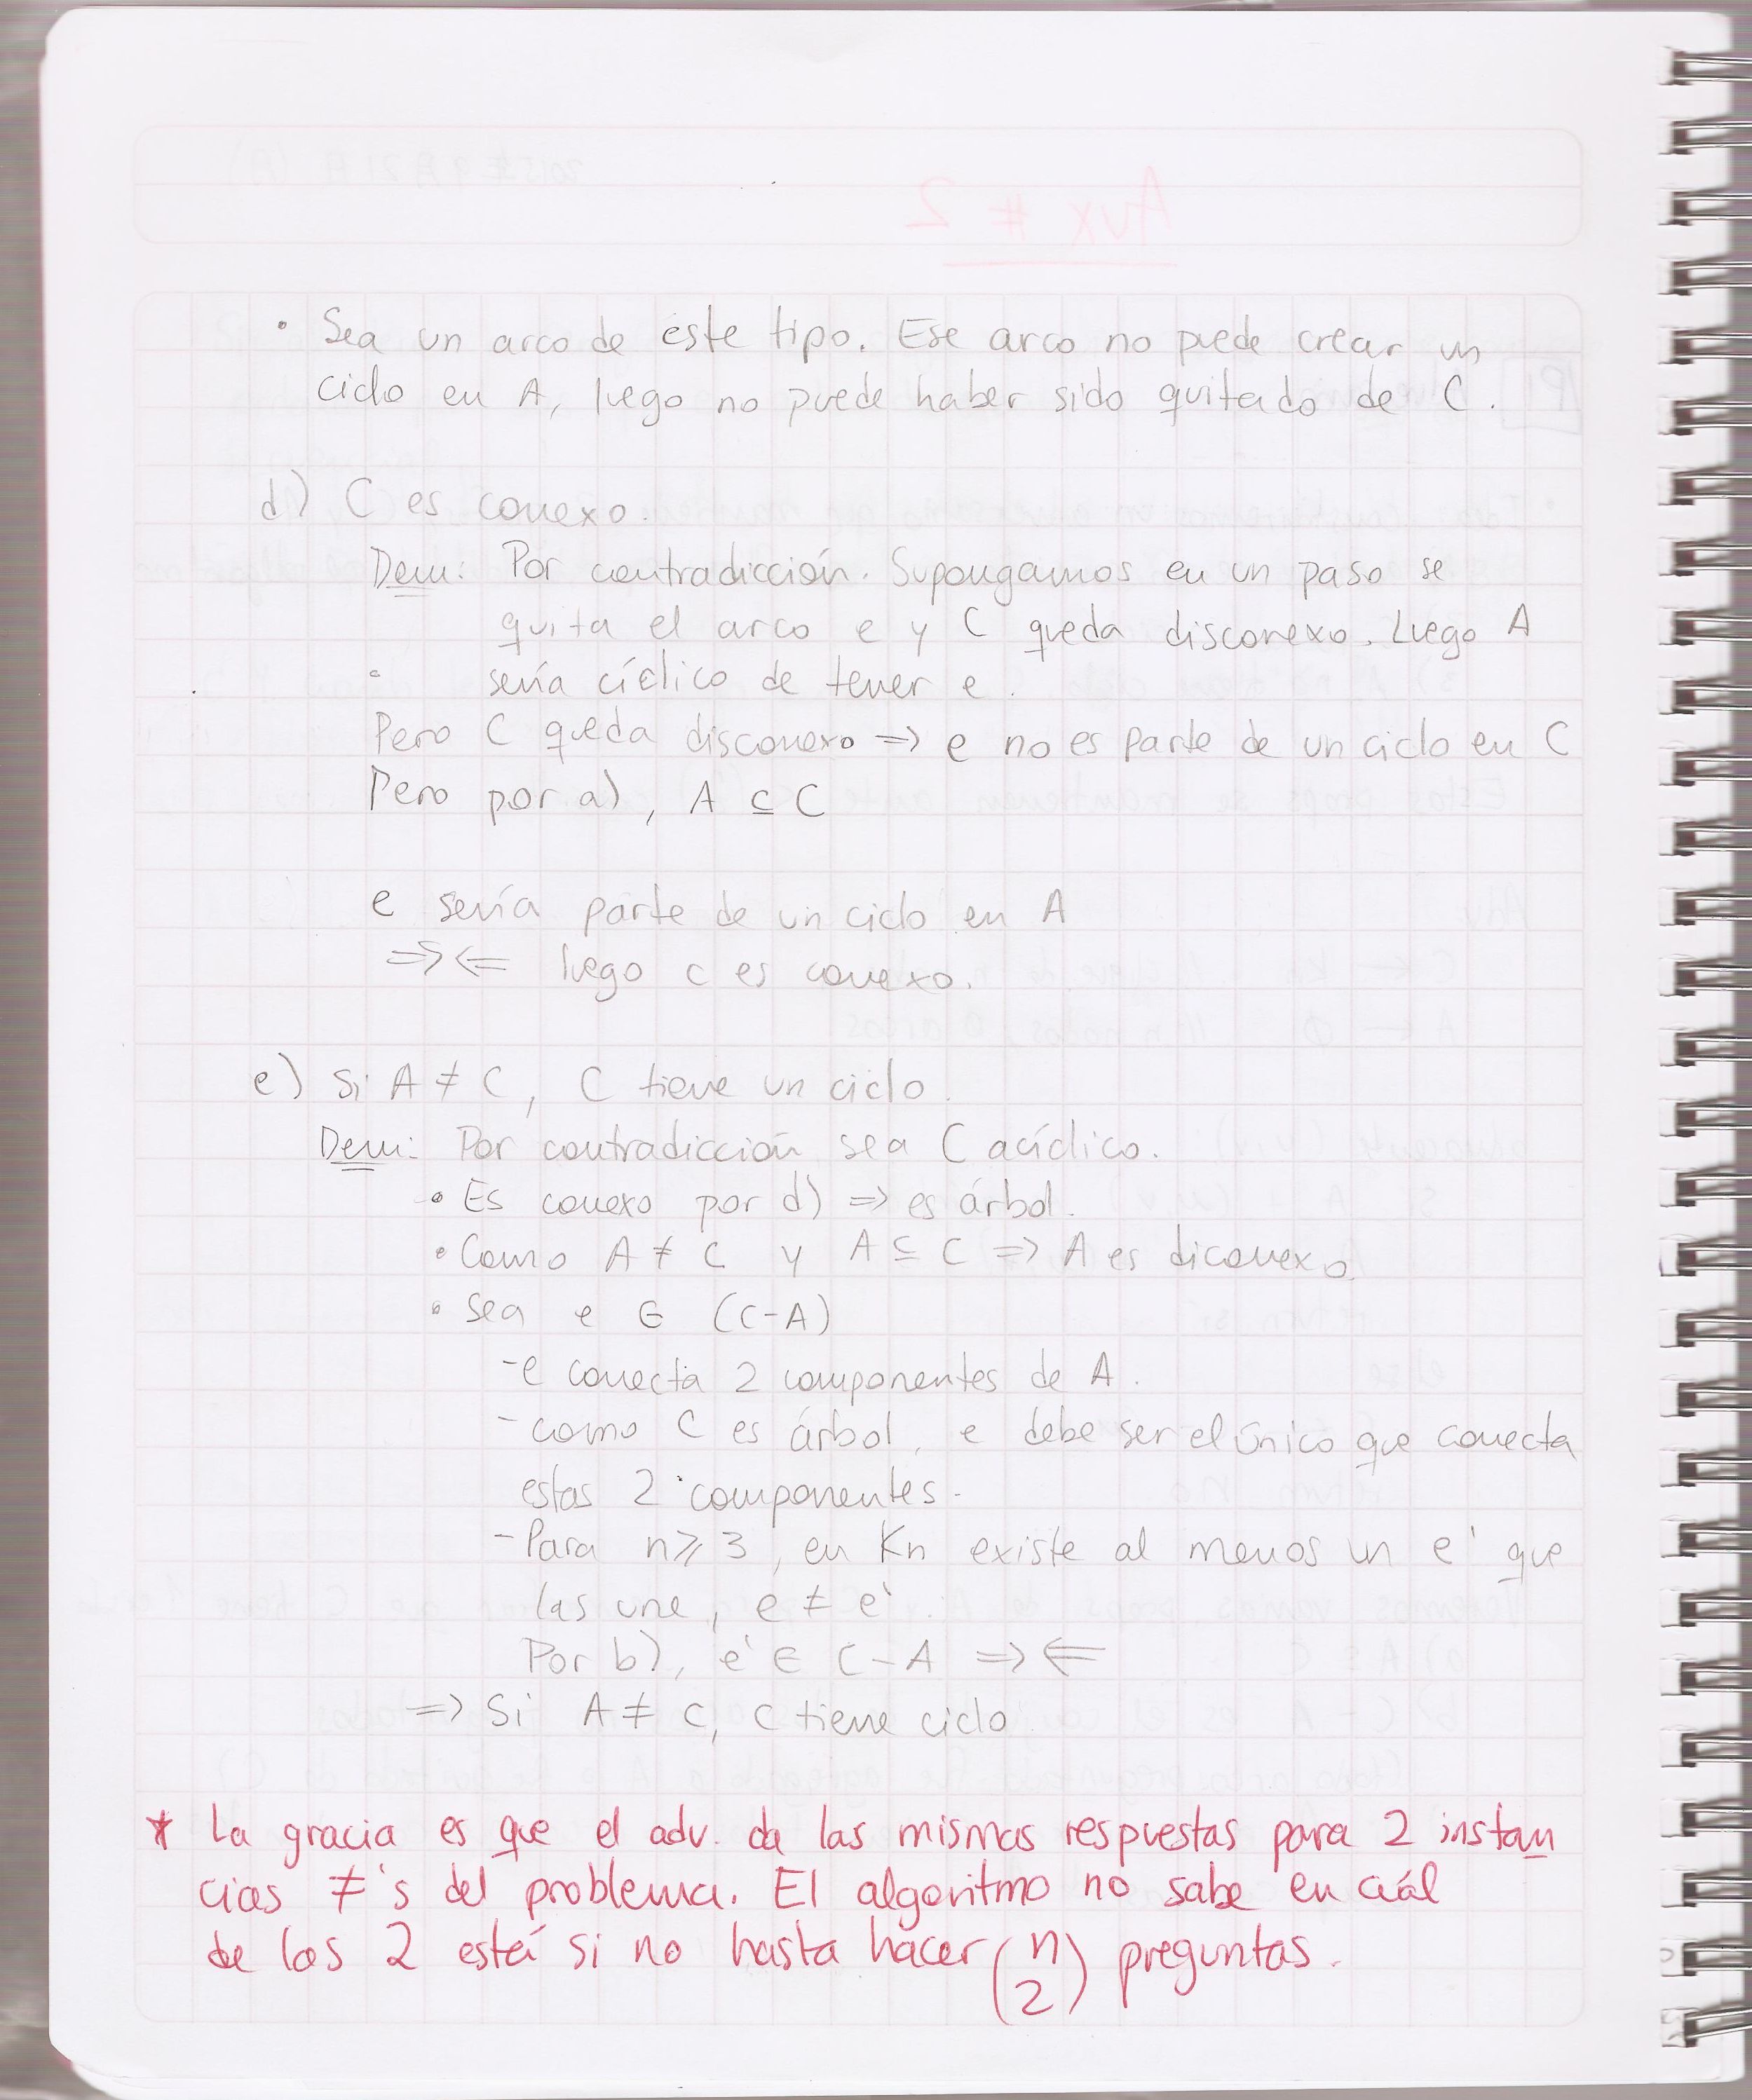 • Sea un arco de este tipo. Ese arco no puede crear un
ciclo en A, luego no puede haber sido quitado de C.
d) C es conexo.
Dem: Por contradicción. Supongamos en un paso se
quita el arco e y C queda disconexo. Luego A
sería cíclico de tener e.
Pero C queda disconexo => e no es parte de un ciclo en C
Pero por a), A ⊆ C
e sería parte de un ciclo en A
=><= luego c es conexo.
e) Si A ≠ C, C tiene un ciclo.
Dem: Por contradicción sea C acíclico.
• Es conexo por d) => es árbol.
• Como A ≠ C y A ⊆ C => A es diconexo.
• Sea e ∈ (C-A)
- e conecta 2 componentes de A.
- como C es árbol, e debe ser el único que conecta
estas 2 componentes.
- Para n ≥ 3, en Kn existe al menos un e' que
las une, e ≠ e'
Por b), e' ∈ C-A =><=
=> Si A ≠ C, C tiene ciclo
* La gracia es que el adv. da las mismas respuestas para 2 instan
cias ≠'s del problema. El algoritmo no sabe en cuál
de los 2 está si no hasta hacer (n 2) preguntas.